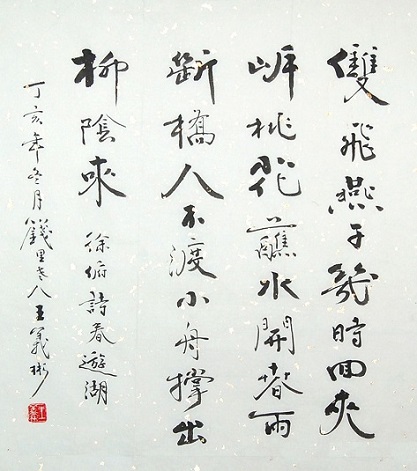 雙飛燕子幾時回夾
岸桃花蘸水開春雨
斷橋人不渡小舟撐出
柳陰來 徐俯詩春遊湖
丁亥年冬月錢里老人王義彬